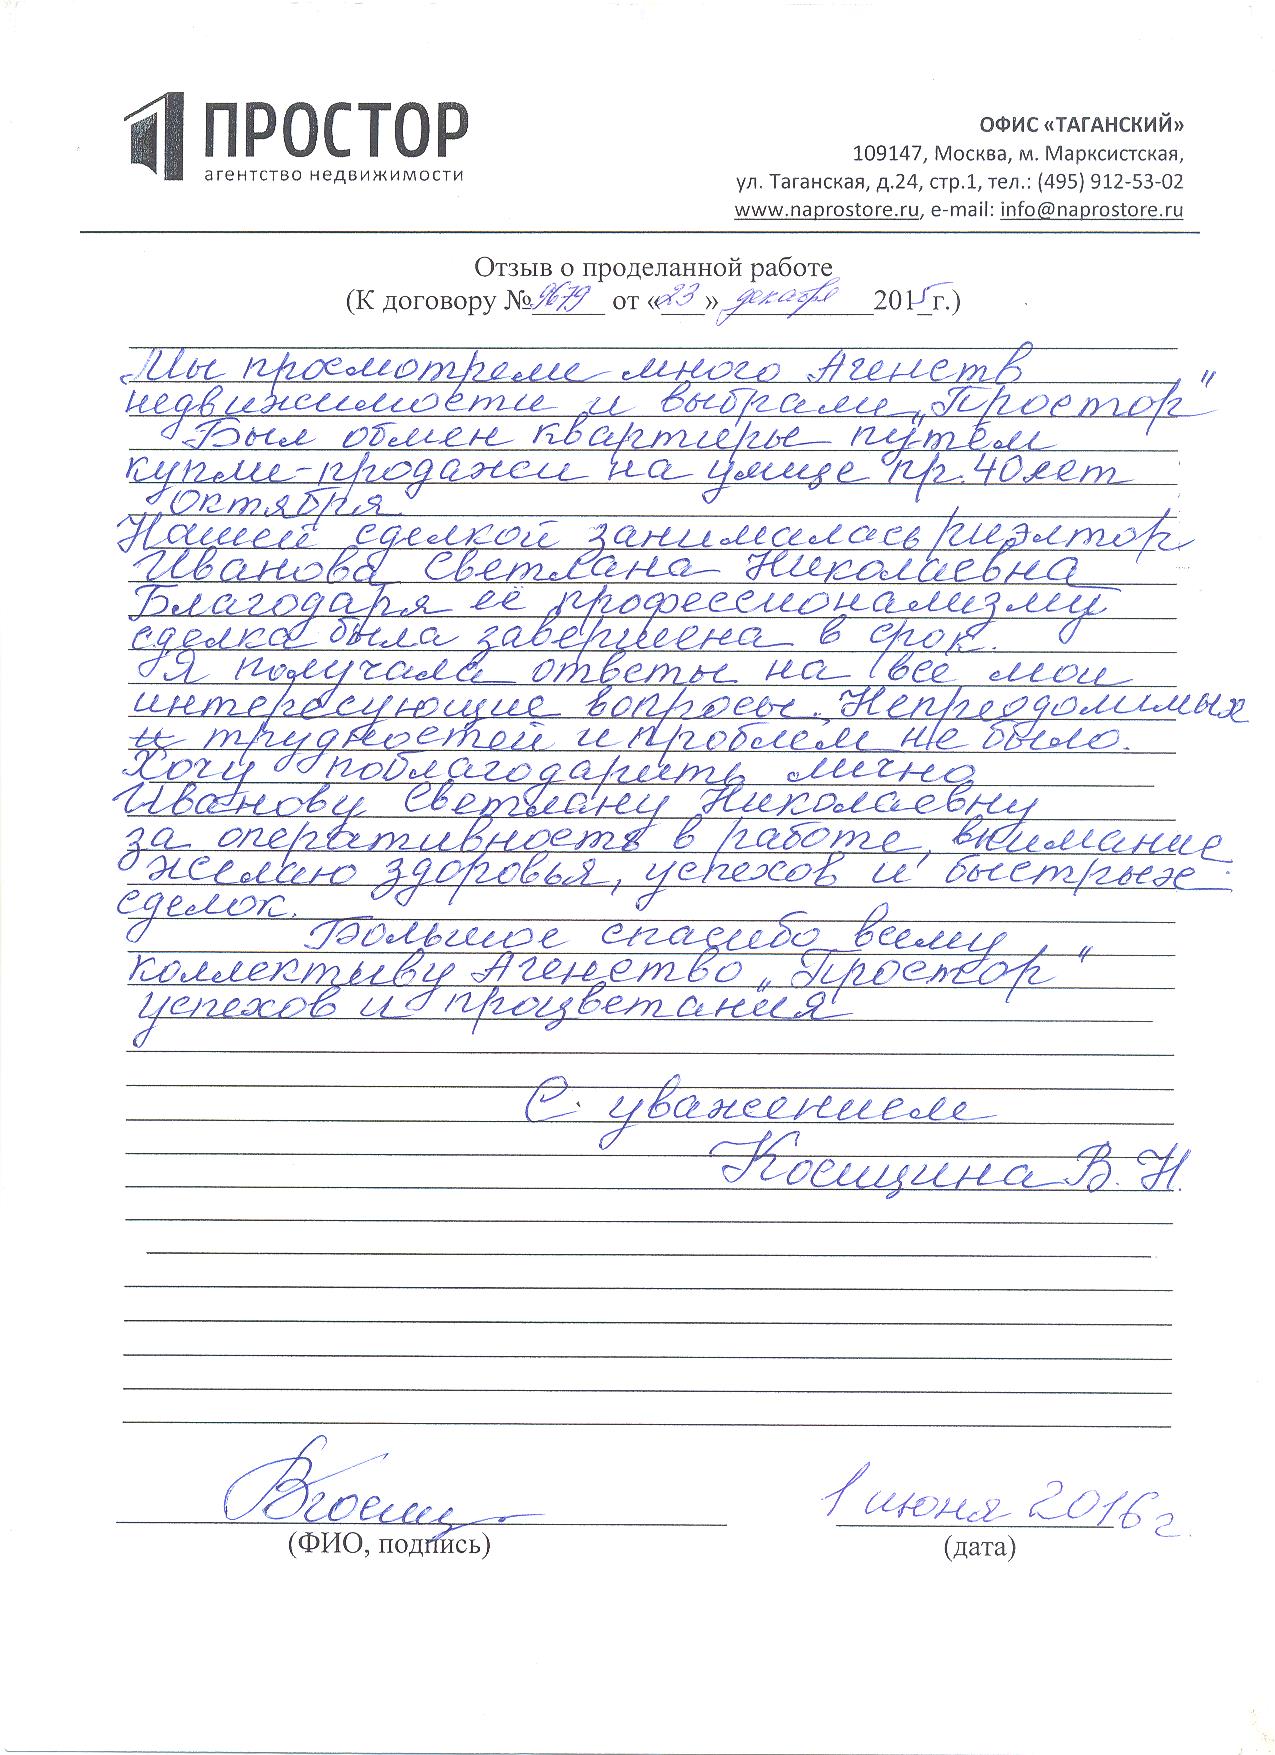 ПРОСТОР
агентство недвижимости
ОФИС «ТАГАНСКИЙ»
109147, Москва, м. Марксистская,
ул. Таганская, д.24, стр.1, тел.: (495) 912-53-02
www.naprostore.ru, e-mail: info@naprostore.ru
Отзыв о проделанной работе
(К договору № 9679 от «23» декабря 2015г.)
Мы просмотрели много Агенств
недвижимости и выбрали „Простор"
Был обмен квартиры путём
купли-продажи на улице пр. 40 лет
Октября
Нашей сделкой занималась риэлтор
Иванова Светлана Николаевна
Благодаря её профессионализму
сделка была завершена в срок.
Я получала ответы на все мои
интересующие вопросы. Непреодолимых
трудностей и проблем не было.
Хочу поблагодарить лично
Иванову Светлану Николаевну
за оперативность в работе, внимание
желаю здоровья, успехов и быстрых
сделок.
Большое спасибо всему
коллективу Агенство „Простор"
успехов и процветания
С уважением
В. Н.
1 июня 2016 г.
(ФИО, подпись)
(дата)